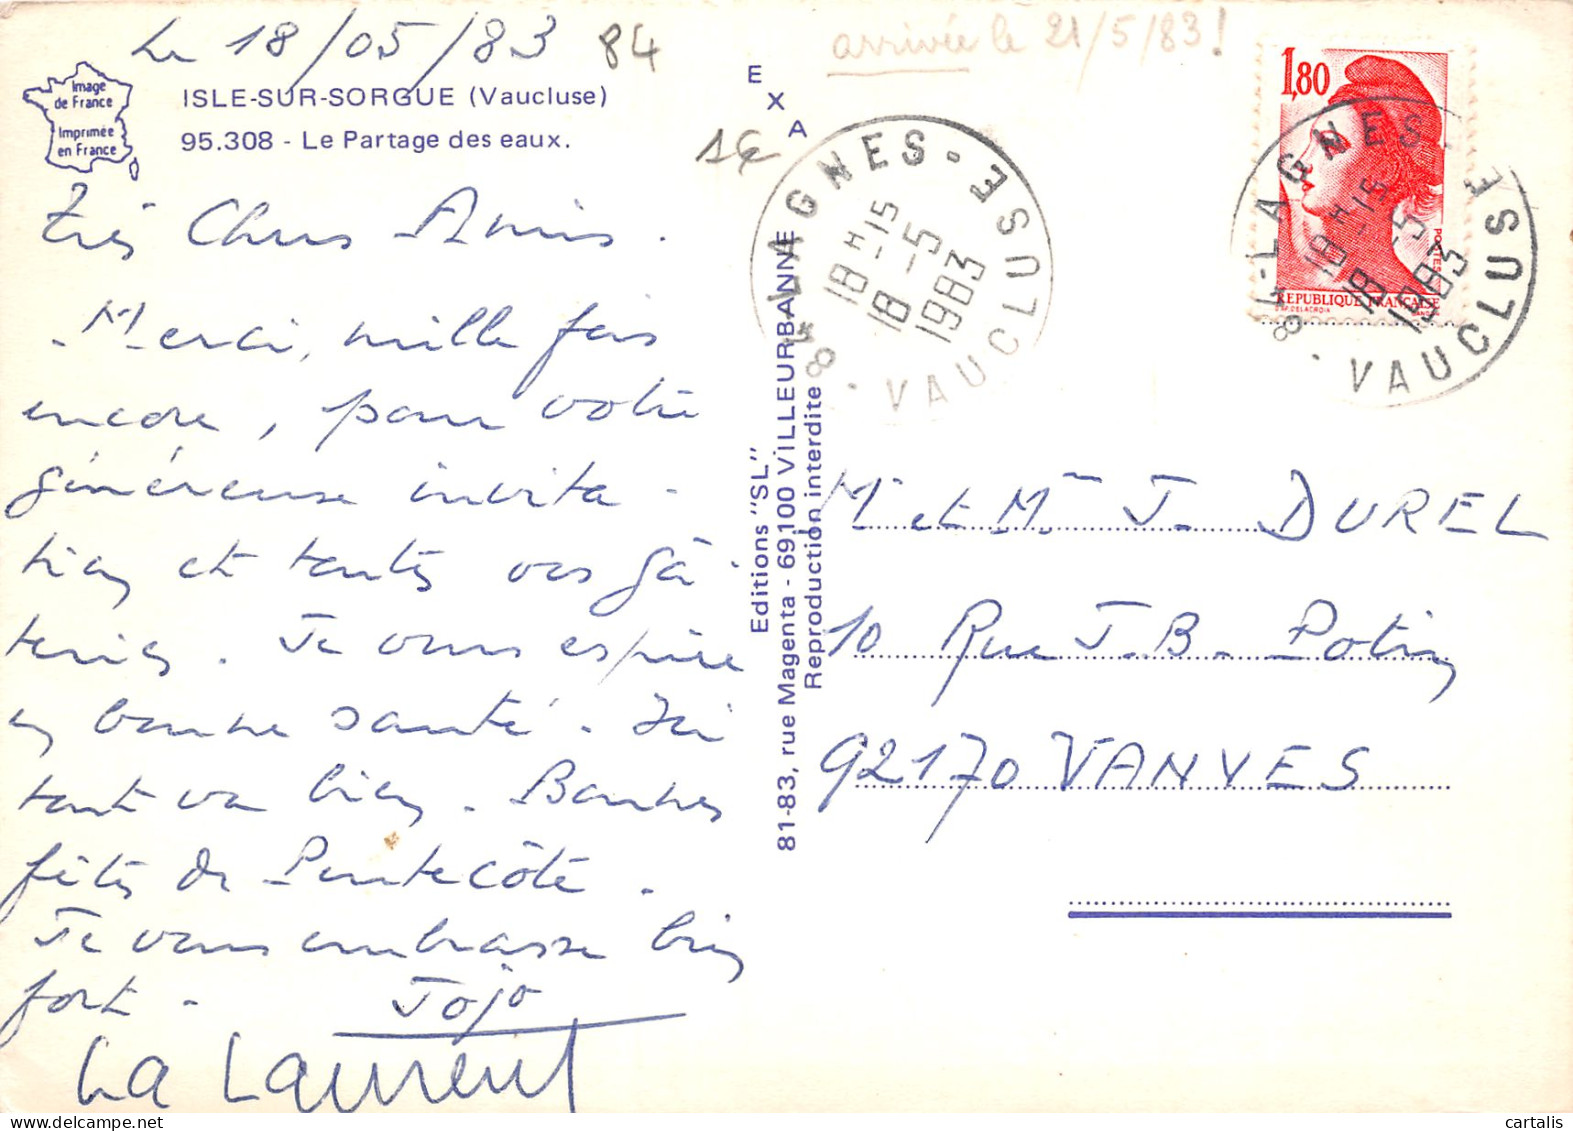 Le 18/05/83
84
arrivée le 21/5/83!
Image
de France
Imprimée
en France
ISLE-SUR-SORGUE (Vaucluse)
95.308 - Le Partage des eaux.
E
X
A
1€
Très Chers Amis.
Merci, mille fois
encore, pour votre
généreuse invita-
tion et toutes vos gâ-
teries. Je vous espère
en bonne santé. Ici
tout va bien. Bonnes
fêtes de Pentecôte.
Je vous embrasse bien
fort. Jojo
La Laurent
Editions "SL"
81-83, rue Magenta - 69100 VILLEURBANNE
Reproduction interdite
84 - LAGNES - VAUCLUSE
18H-15
18-5
1983
1,80
POSTES
REPUBLIQUE FRANCAISE
DELACROIX
84-LAGNES-VAUCLUSE
18H-15
18-5
1983
Mr et Mme J. DUREL
10 Rue J.B. Potin
92170 VANVES
cartalis
www.delcampe.net